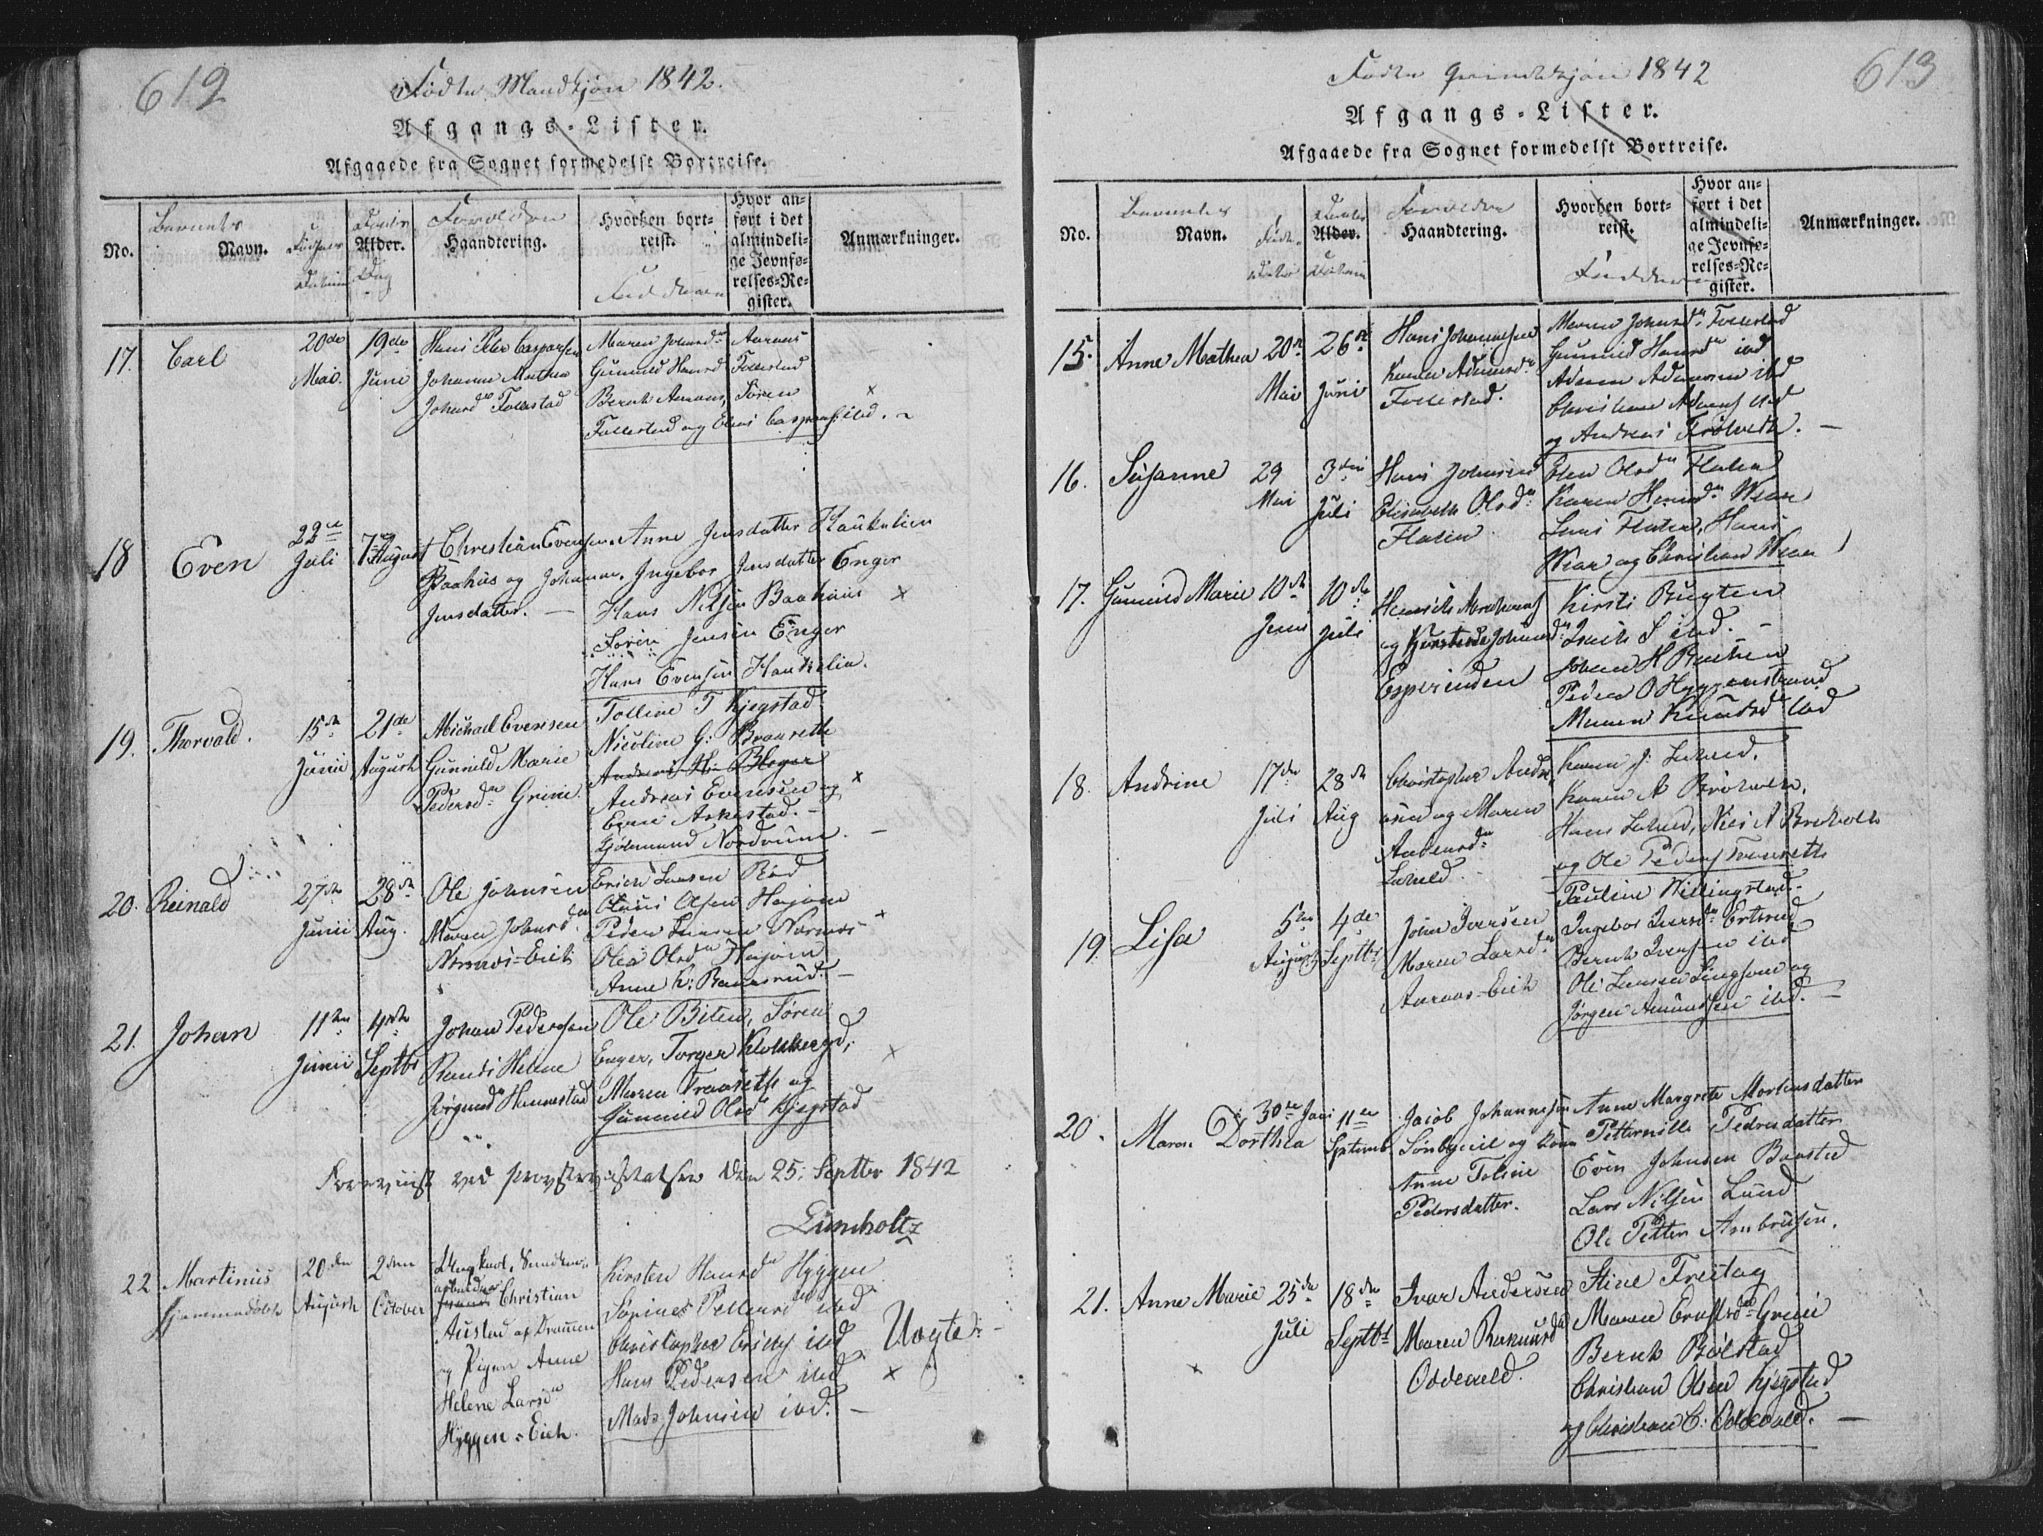 612
Fødte Mandkjøn 1842.
Afgangs-Lister.
Afgaaede fra Sognet formedelst Bortreise.
No.
Barnets
Navn.
Fødsels
Datum
Daabs
Alder.
Dag
Forældre
Haandtering.
Hvorhen bort-
reist.
Fadderne
Hvor an-
ført i det
almindeli-
ge Jevnfø-
relses-Re-
gister.
Anmærkninger.
17.
Carl
20de
Mai.
19de
Juni
Hans Peter Caspersen
Johanne Mathea
Johnsd Follestad
Maren Johnsd Aaraas
Gunnild Hansd Follestad
Bernt Aaraas, Søren
Follestad og Elias Caspersen ibd.
18
Even
22de
Juli
7de August
Christian Evensen
Baahus og Johanne
Jensdatter.
Anne Jensdatter Haukelien
Ingebor Jensdatter Enger
Hans Nilsen Baahuus
Søren Jensen Enger
Hans Evensen Haukelin.
19.
Thorvald.
15de
Junii
21de
August
Michael Evensen
Gunnild Marie
Pedersd Grini
Tolline T Kjegstad
Nicoline G: Braaseth
Andreas H: Hager
Andreas Evensen og
Askestad.
Gudmund Nordrum.
20.
Reinald
27de
Junii
28de
Aug.
Ole Johnsen
Maren Johnsd
Aaraas-Eich
Erich Larsen Rød
Olaus Olsen Højem
Peder Larsen Aaraas
Olea Olsd Højem
Anne H: Ramsrud.
21.
Johan
11te
Junii
4de
Septbr
Johan Pedersen
Randi Helene
Jørgensd Hennestad
Ole Biten, Søren
Enger, Torger Klokkergd,
Maren Traaseth og
Gunnild Olsd Kjegstad
Foreviist ved Provstevisitatsen den 25. Septbr 1842
Lumholtz
22
Martinus
20de
August
2den
October
Ungkarl,
Christian
Austad af Drammen
og Pigen Anne
Helene Larsd
Hyggen-Eich.
Kirsten Hansd Hyggen
ibd
Christopher ibd
Hans Pedersen ibd
Mads Johnsen ibd.
Uægte
613
Fødte Qvindekjøn 1842
Afgangs-Lister.
Afgaaede fra Sognet formedelst Bortreise.
No.
Barnets
Navn.
Føds.
Datum
Daabs
Alder.
Datum
Forældre
Haandtering.
Hvorhen bort-
reist.
Fadderne
Hvor an-
ført i det
almindeli-
ge Jevnfø-
relses-Re-
gister.
Anmærkninger.
15.
Anne Mathea
20de
Mai
26de
Junii
Hans Johannesen
Karen Adamsd
Follestad.
Maren Johnsd Follestad
Gunnild Hansd ibd
Adam Adamsen ibd
Christian Adams ibd
og Andreas Frøtvedt.
16.
Susanne
29
Mai
3die
Juli
Hans Johnsen
Elisabeth Olsd
Flaten
Elen Olsd Flaten
Karen Hansd Wear
Lars Flaten, Hans
Wear og Christian Wear
17.
Gunnild Marie
10de
Juni
10de
Juli
Henrich Abrahams
og Kirstine Johnsd
Esperuden
Kirsti Bugten
ibd.
Johan H Bugten
Peder O Hyggenstrand
Maren Knudsd ibd
18.
Andrine
17de
Juli
28de
Aug
Christopher Andr-
esen og Maren
Andersd
Lahell.
Karen J: Lahell.
Karen A Brøholt,
Hans Lahell, Niels A Breholt
og Ole Peders Traaseth
19.
Lisa
5te
August
4de
Septbr
John Iversen
Maren Larsd
Aaraas-Eich
Pauline Killingstad.
Ingebor Iversd Ertsrud
Bernt Iversen ibd
Ole Larsen Lingsom og
Jørgen Amundsen ibd.
20.
Maren Dorthea
30te Juni
11te
Septemb
Jacob Johannesen
Sørbyeie og Kone
Anne Toline
Pedersdatter.
Anne Margrete Mortensdatter
Petternille Pedersdatter
Even Johnsen Baasted
Lars Nilsen Lund
Ole Petter Ambrosen.
21.
Anne Marie
25de
Juli
18de
Septbr
Ivar Andersen
Maren Rasmusd
Oddevald.
Stine Freitag
Maren Erichsd Grini
Bernt Bølstad
Christian Olsen Kjegstad
og Christian C: Oddevald.